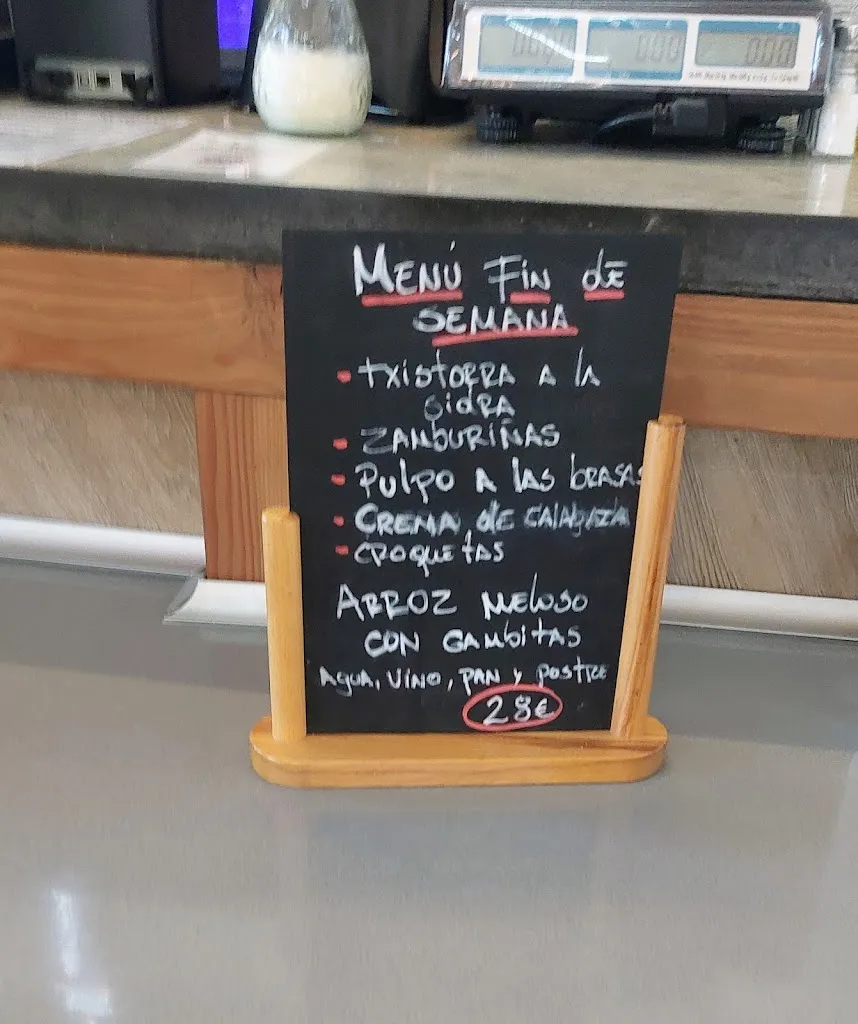 MENÚ FIN DE
SEMANA
- TXISTORRA A LA
SIDRA
- ZAMBURIÑAS
- PULPO A LAS BRASAS
- CREMA DE CALABAZA
- CROQUETAS
ARROZ MELOSO
CON GAMBITAS
AGUA, VINO, PAN Y POSTRE
28€